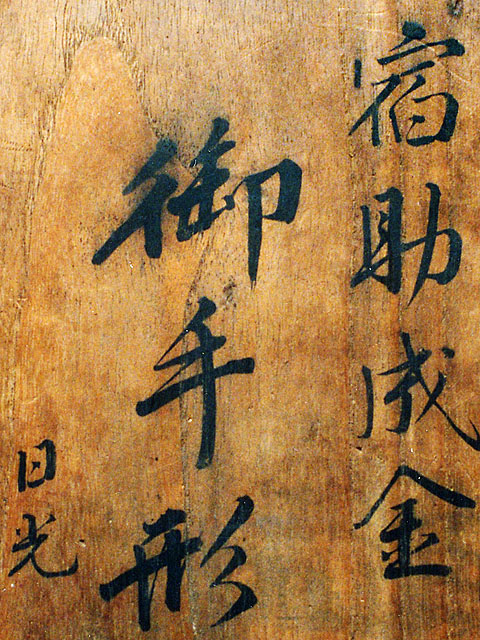 宿助成金
御手形
日光